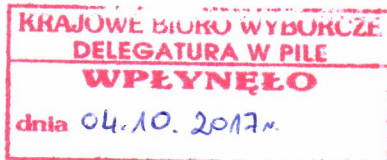 KRAJOWE BIURO WYBORCZE
DELEGATURA W PILE
WPŁYNĘŁO
dnia 04.10.2017r.